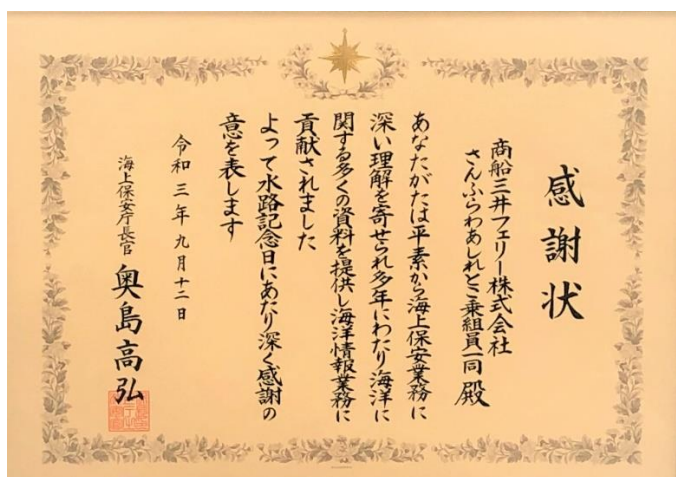 感謝状
商船三井フェリー株式会社
さんふらわあしれとこ乗組員一同 殿
あなたがたは平素から海上保安業務に
深い理解を寄せられ多年にわたり海洋に
関する多くの資料を提供し海洋情報業務に
貢献されました
よって水路記念日にあたり深く感謝の
意を表します
令和三年九月十二日
海上保安庁長官 奥島高弘